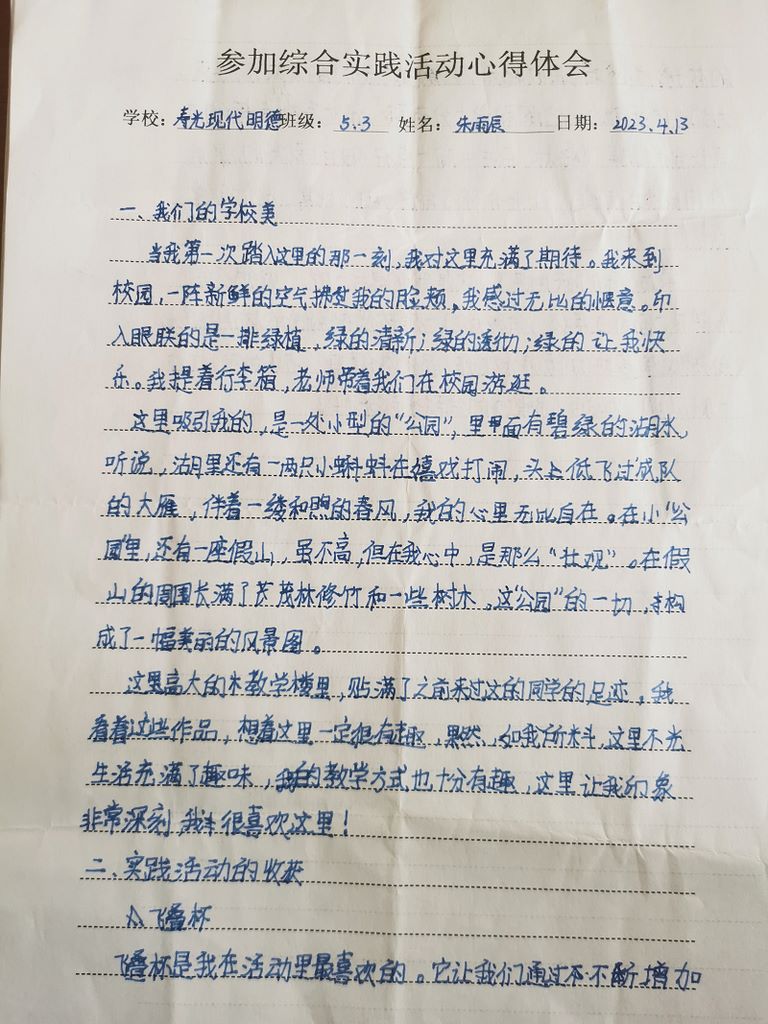 参加综合实践活动心得体会
学校：寿光现代明德班级：5.3 姓名：朱雨辰 日期：2023.4.13
一、我们的学校美
当我第一次踏入这里的那一刻，我对这里充满了期待。我来到
校园，一阵新鲜的空气拂过我的脸颊，我感过无比的惬意。印
入眼联的是一排绿植，绿的清新；绿的透彻；绿的让我快
乐。我提着行李箱，老师带着我们在校园游逛。
这里吸引我的，是一处小型的“公园”，里面有碧绿的湖水，
听说，湖里还有一两只小蝌蚪在嬉戏打闹，头上低飞过成队
的大雁，伴着一缕和煦的春风，我的心里无比自在。在小“公
园”里，还有一座假山，虽不高，但在我心中，是那么“壮观”。在假
山的周围长满了茂林修竹和一些树木。这“公园”的一切，构
成了一幅美丽的风景图。
这里高大的教学楼里，贴满了之前来过这的同学的足迹。我
看着这些作品，想着这里一定很有趣，果然，如我所料，这里不光
生活充满了趣味，的教学方式也十分有趣，这里让我印象
非常深刻，我很喜欢这里！
二、实践活动的收获
飞叠杯
飞叠杯是我在活动里最喜欢的。它让我们通过不断增加